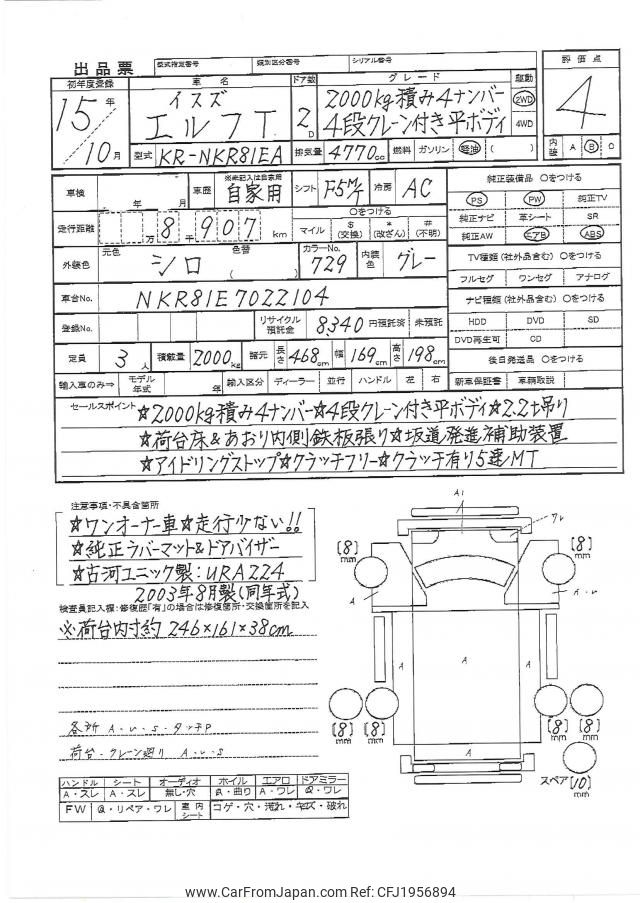 出品票 型式指定番号 類別区分番号 シリアル番号
初年度登録 車名 ドア数 グレード 駆動 評価点
15年 イスズ 2D 2000kg積み4ナンバー 2WD 4
10月 エルフT 4段クレーン付き平ボディ 4WD
型式 KR-NKR81EA 排気量 4770cc 燃料 ガソリン 軽油 ( ) 内装 A B C
車検 年 月 車歴 ※未記入は自家用 自家用 シフト F5M/T 冷房 AC 純正装備品 〇をつける
PS PW 純正TV
走行距離 万 8千 907 km 〇をつける マイル $(交換) *(改ざん) #(不明) 純正ナビ 革シート SR
純正AW エアB ABS
外装色 元色 シロ 色替 ( ) カラーNo. 729 内装色 グレー TV種類(社外品含む) 〇をつける
フルセグ ワンセグ アナログ
車台No. NKR81E7022104 ナビ種類(社外品含む) 〇をつける
登録No. リサイクル預託金 8,340 円預託済 未預託 HDD DVD SD
DVD再生可 CD
定員 3人 積載量 2000kg 諸元 長さ 468cm 幅 169cm 高さ 198cm 後日発送品 〇をつける
輸入車のみ⇒ モデル年式 年 輸入区分 ディーラー 並行 ハンドル 左 右 新車保証書 車輌取説
セールスポイント ☆2000kg積み4ナンバー☆4段クレーン付き平ボディ☆2.2t吊り
☆荷台床&あおり内側鉄板張り☆坂道発進補助装置
☆アイドリングストップ☆クラッチフリー☆クラッチ有り5速MT
注意事項・不具合箇所
☆ワンオーナー車☆走行少ない!!
☆純正ラバーマット&ドアバイザー
☆古河ユニック製:URA224
2003年8月製(同年式)
検査員記入欄:修復歴「有」の場合は修復箇所・交換箇所を記入
※荷台内寸約 246×161×38cm
各所 A・U・S・タッチP
荷台・クレーン廻り A・U・S
A1
ワレ
[8]mm [8]mm
A A・U
A A A
[8]mm [8]mm [8]mm [8]mm
A
スペア [10]mm
ハンドル シート オーディオ ホイル エアロ ドアミラー
A・スレ A・スレ 無し・穴 A・曲り A・ワレ Q・ワレ
FW Q・リペア・ワレ 室内シート コゲ・穴・汚れ・キズ・破れ
www.CarFromJapan.com Ref: CFJ1956894